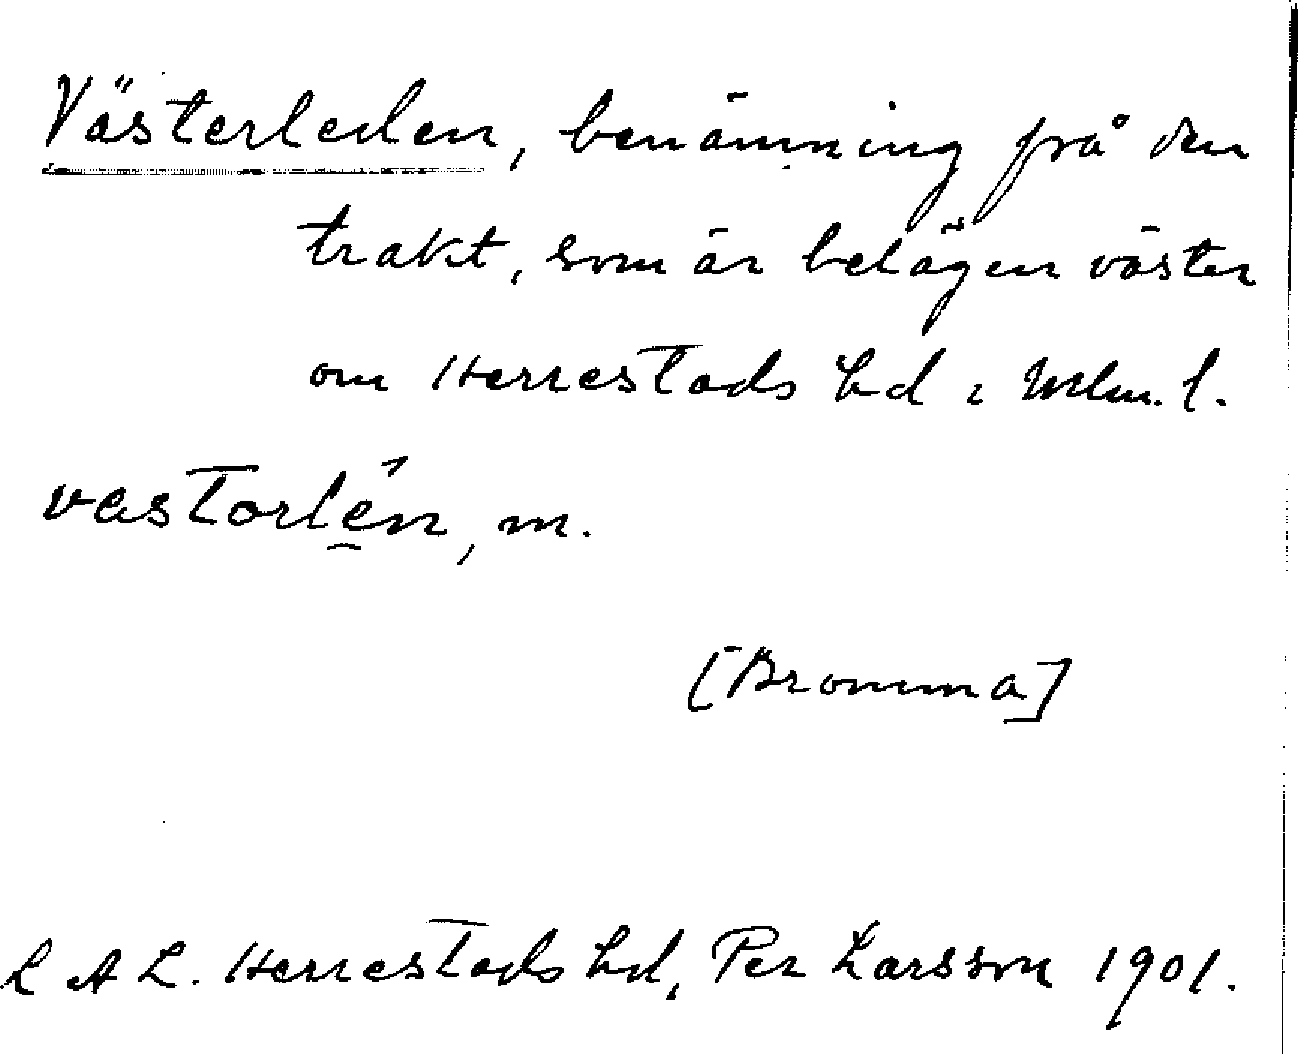 Västerleden, benämning på den
trakt, som är belägen väster
om Herrestads hd i Mlm. l.
vastorlén, m.
[Bromma]
L A L. Herrestads hd, Per Larsson 1901.